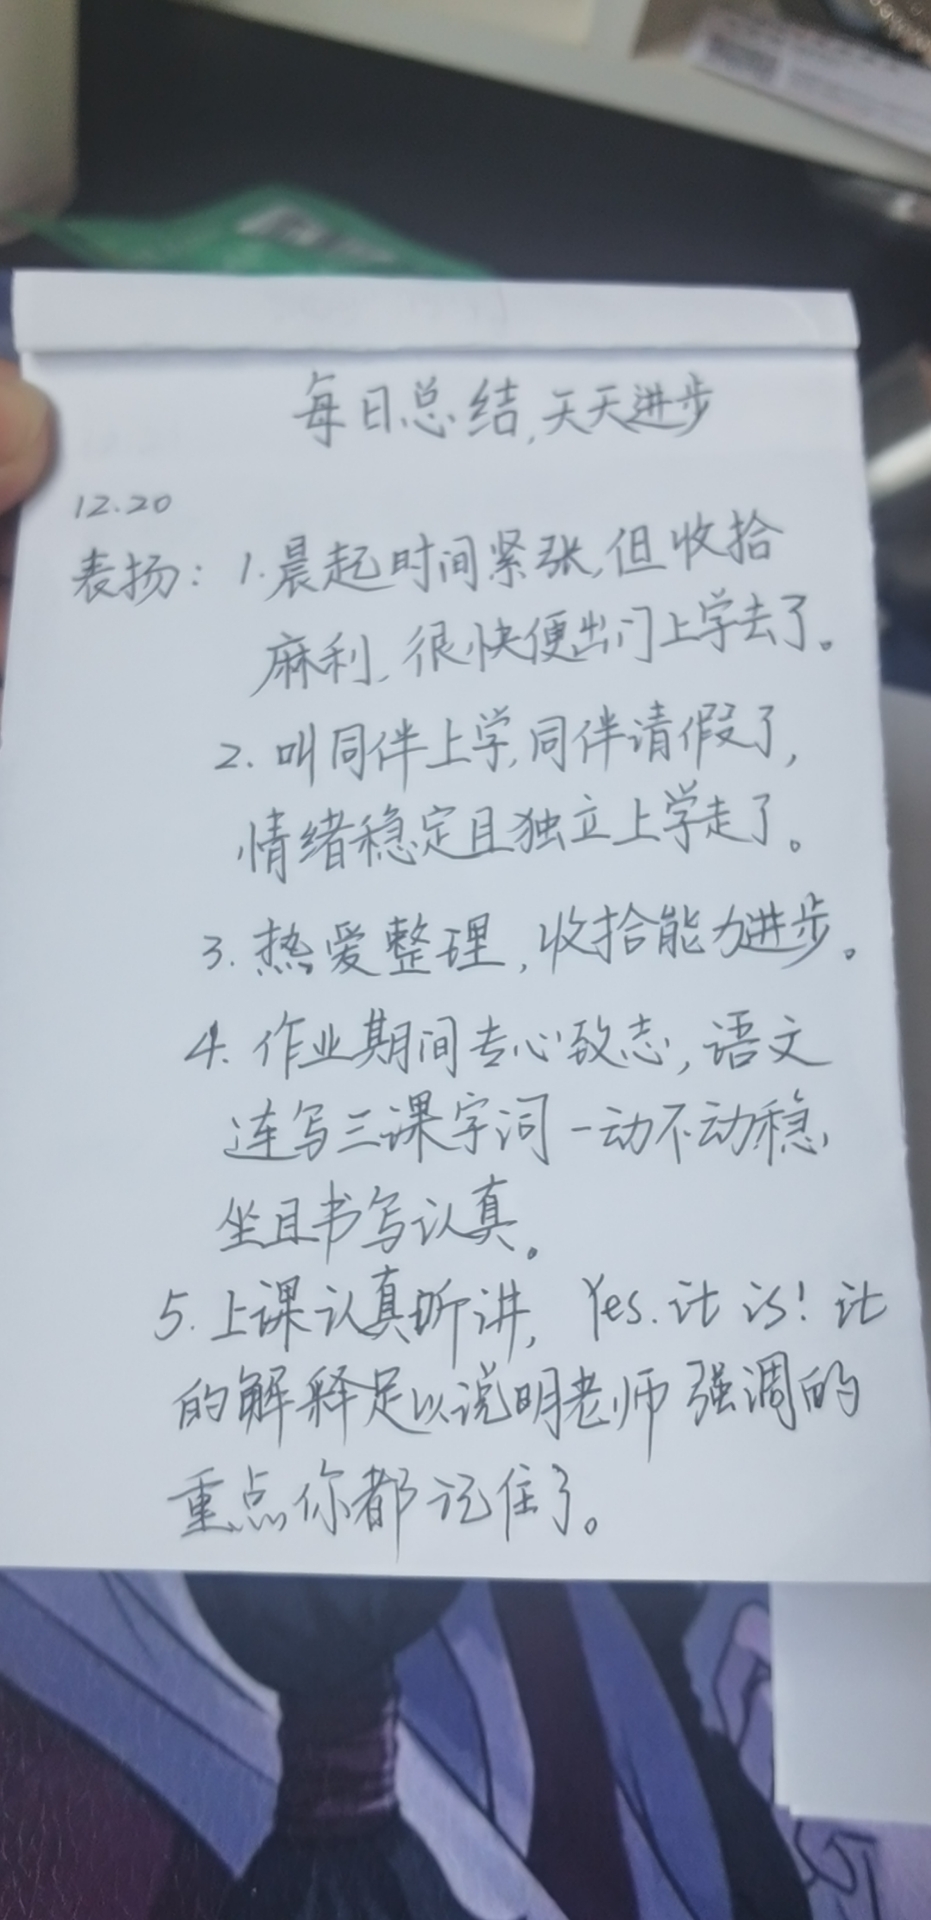 每日总结,天天进步
12.20
表扬：1.晨起时间紧张,但收拾
麻利,很快便出门上学去了。
2.叫同伴上学,同伴请假了,
情绪稳定且独立上学走了。
3.热爱整理,收拾能力进步。
4.作业期间专心致志,语文
连写三课字词一动不动稳,
坐且书写认真。
5.上课认真听讲,Yes.it is!it
的解释足以说明老师强调的
重点你都记住了。